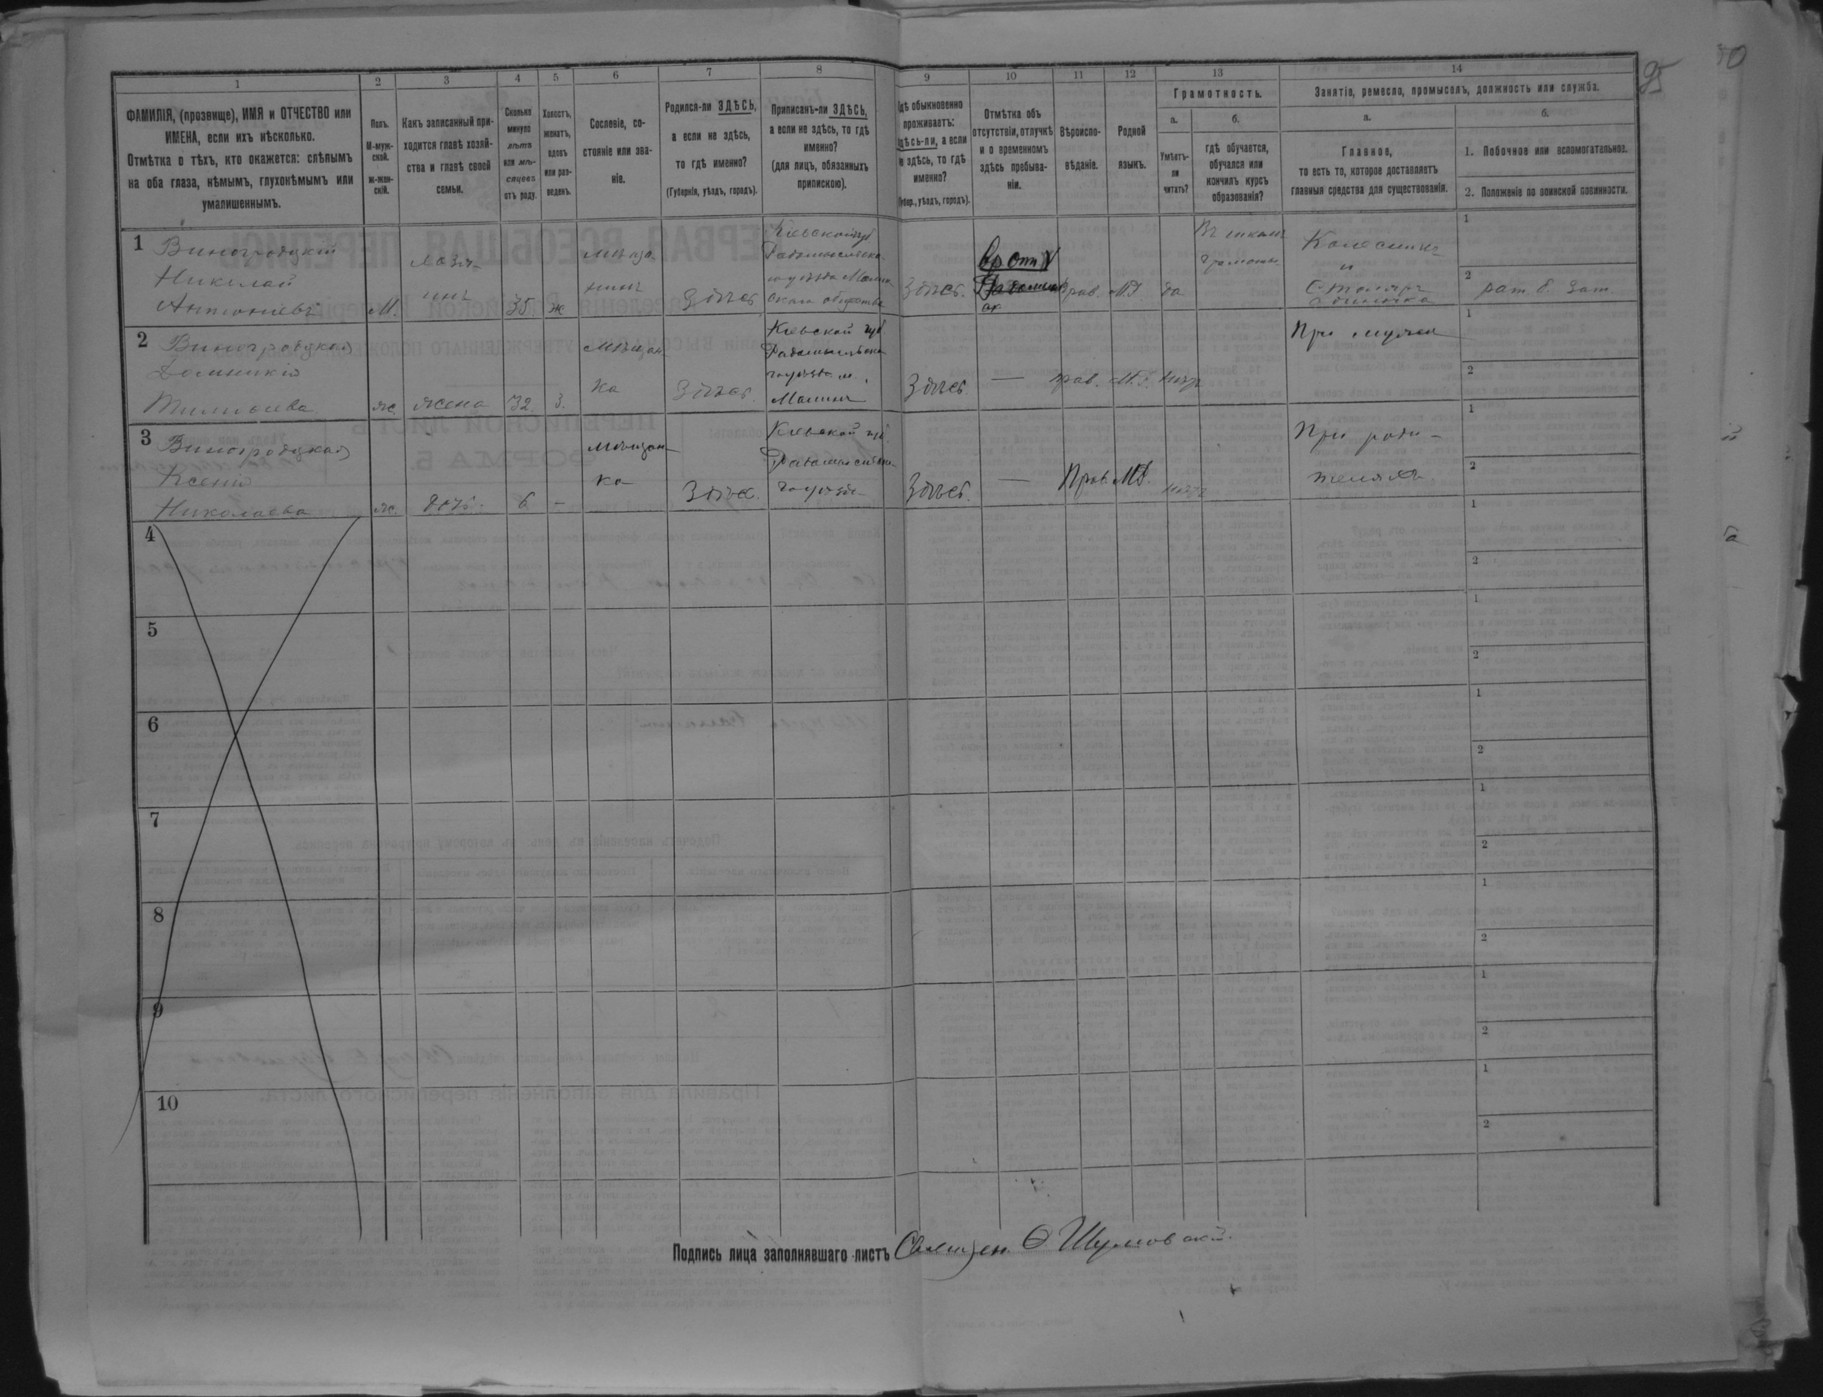 1 2 3 4 5 6 7 8 9 10 11 12 13 14
95
ФАМИЛІЯ, (прозвище), ИМЯ и ОТЧЕСТВО или
ИМЕНА, если ихъ нѣсколько.
Отмѣтка о тѣхъ, кто окажется: слѣпымъ
на оба глаза, нѣмымъ, глухонѣмымъ или
умалишеннымъ.
Полъ.
М-муж-
ской.
ж-жен-
скій.
Какъ записанный при-
ходится главѣ хозяй-
ства и главѣ своей
семьи.
Сколько
минуло
лѣтъ
или мѣ-
сяцевъ
отъ роду.
Холостъ,
женатъ,
вдовъ
или раз-
веденъ.
Сословіе, со-
стояніе или зва-
ніе.
Родился-ли ЗДѢСЬ,
а если не здѣсь,
то гдѣ именно?
(Губернія, уѣздъ, городъ).
Приписанъ-ли ЗДѢСЬ,
а если не здѣсь, то гдѣ
именно?
(для лицъ, обязанныхъ
припискою).
Гдѣ обыкновенно
проживаетъ:
здѣсь-ли, а если
не здѣсь, то гдѣ
именно?
(Губер., уѣздъ, городъ).
Отмѣтка объ
отсутствіи, отлучкѣ
и о временномъ
здѣсь пребыва-
ніи.
Вѣроиспо-
вѣданіе.
Родной
языкъ.
Грамотность.
а.
Умѣетъ-
ли
читать?
б.
гдѣ обучается,
обучался или
кончилъ курсъ
образованія?
Занятіе, ремесло, промыселъ, должность или служба.
а.
Главное,
то есть то, которое доставляетъ
главныя средства для существованія.
б.
1. Побочное или вспомогательное.
2. Положеніе по воинской повинности.
1
Виногродцкій
Николай
Антоніевъ
М.
хозя-
инъ
35
ж
мѣща
нинъ
Здѣсь
Кіевской губ
Радомысльска-
го уѣзда Малин
скаго общества
Здѣсь.
вр отл
Прав. МР да
Въ школѣ
грамоты
Колесникъ
и
Столяръ
1
2
рат. б. зап.
2
Виногродцкая
Домникія
ж. жена 32 З.
мѣщан
ка
Здѣсь
Кіевской губ
Радомысльска
го уѣзда м.
Малинъ
Здѣсь
—
прав. М.Р. нѣтъ
При мужѣ
1
2
3
Виногродцкая
Ксенія
Николаева
ж. дочь. 6 –
мѣщан
ка
Здѣсь.
Кіевской губ.
Радомысльска
го уѣзда
Здѣсь.
—
Прав. МР. нѣтъ
При роди-
теляхъ.
1
2
4
1
2
5
1
2
6
1
2
7
1
2
8
1
2
9
1
2
10
1
2
Подпись лица заполнявшаго листъ Священ. Ѳ Шумовскій